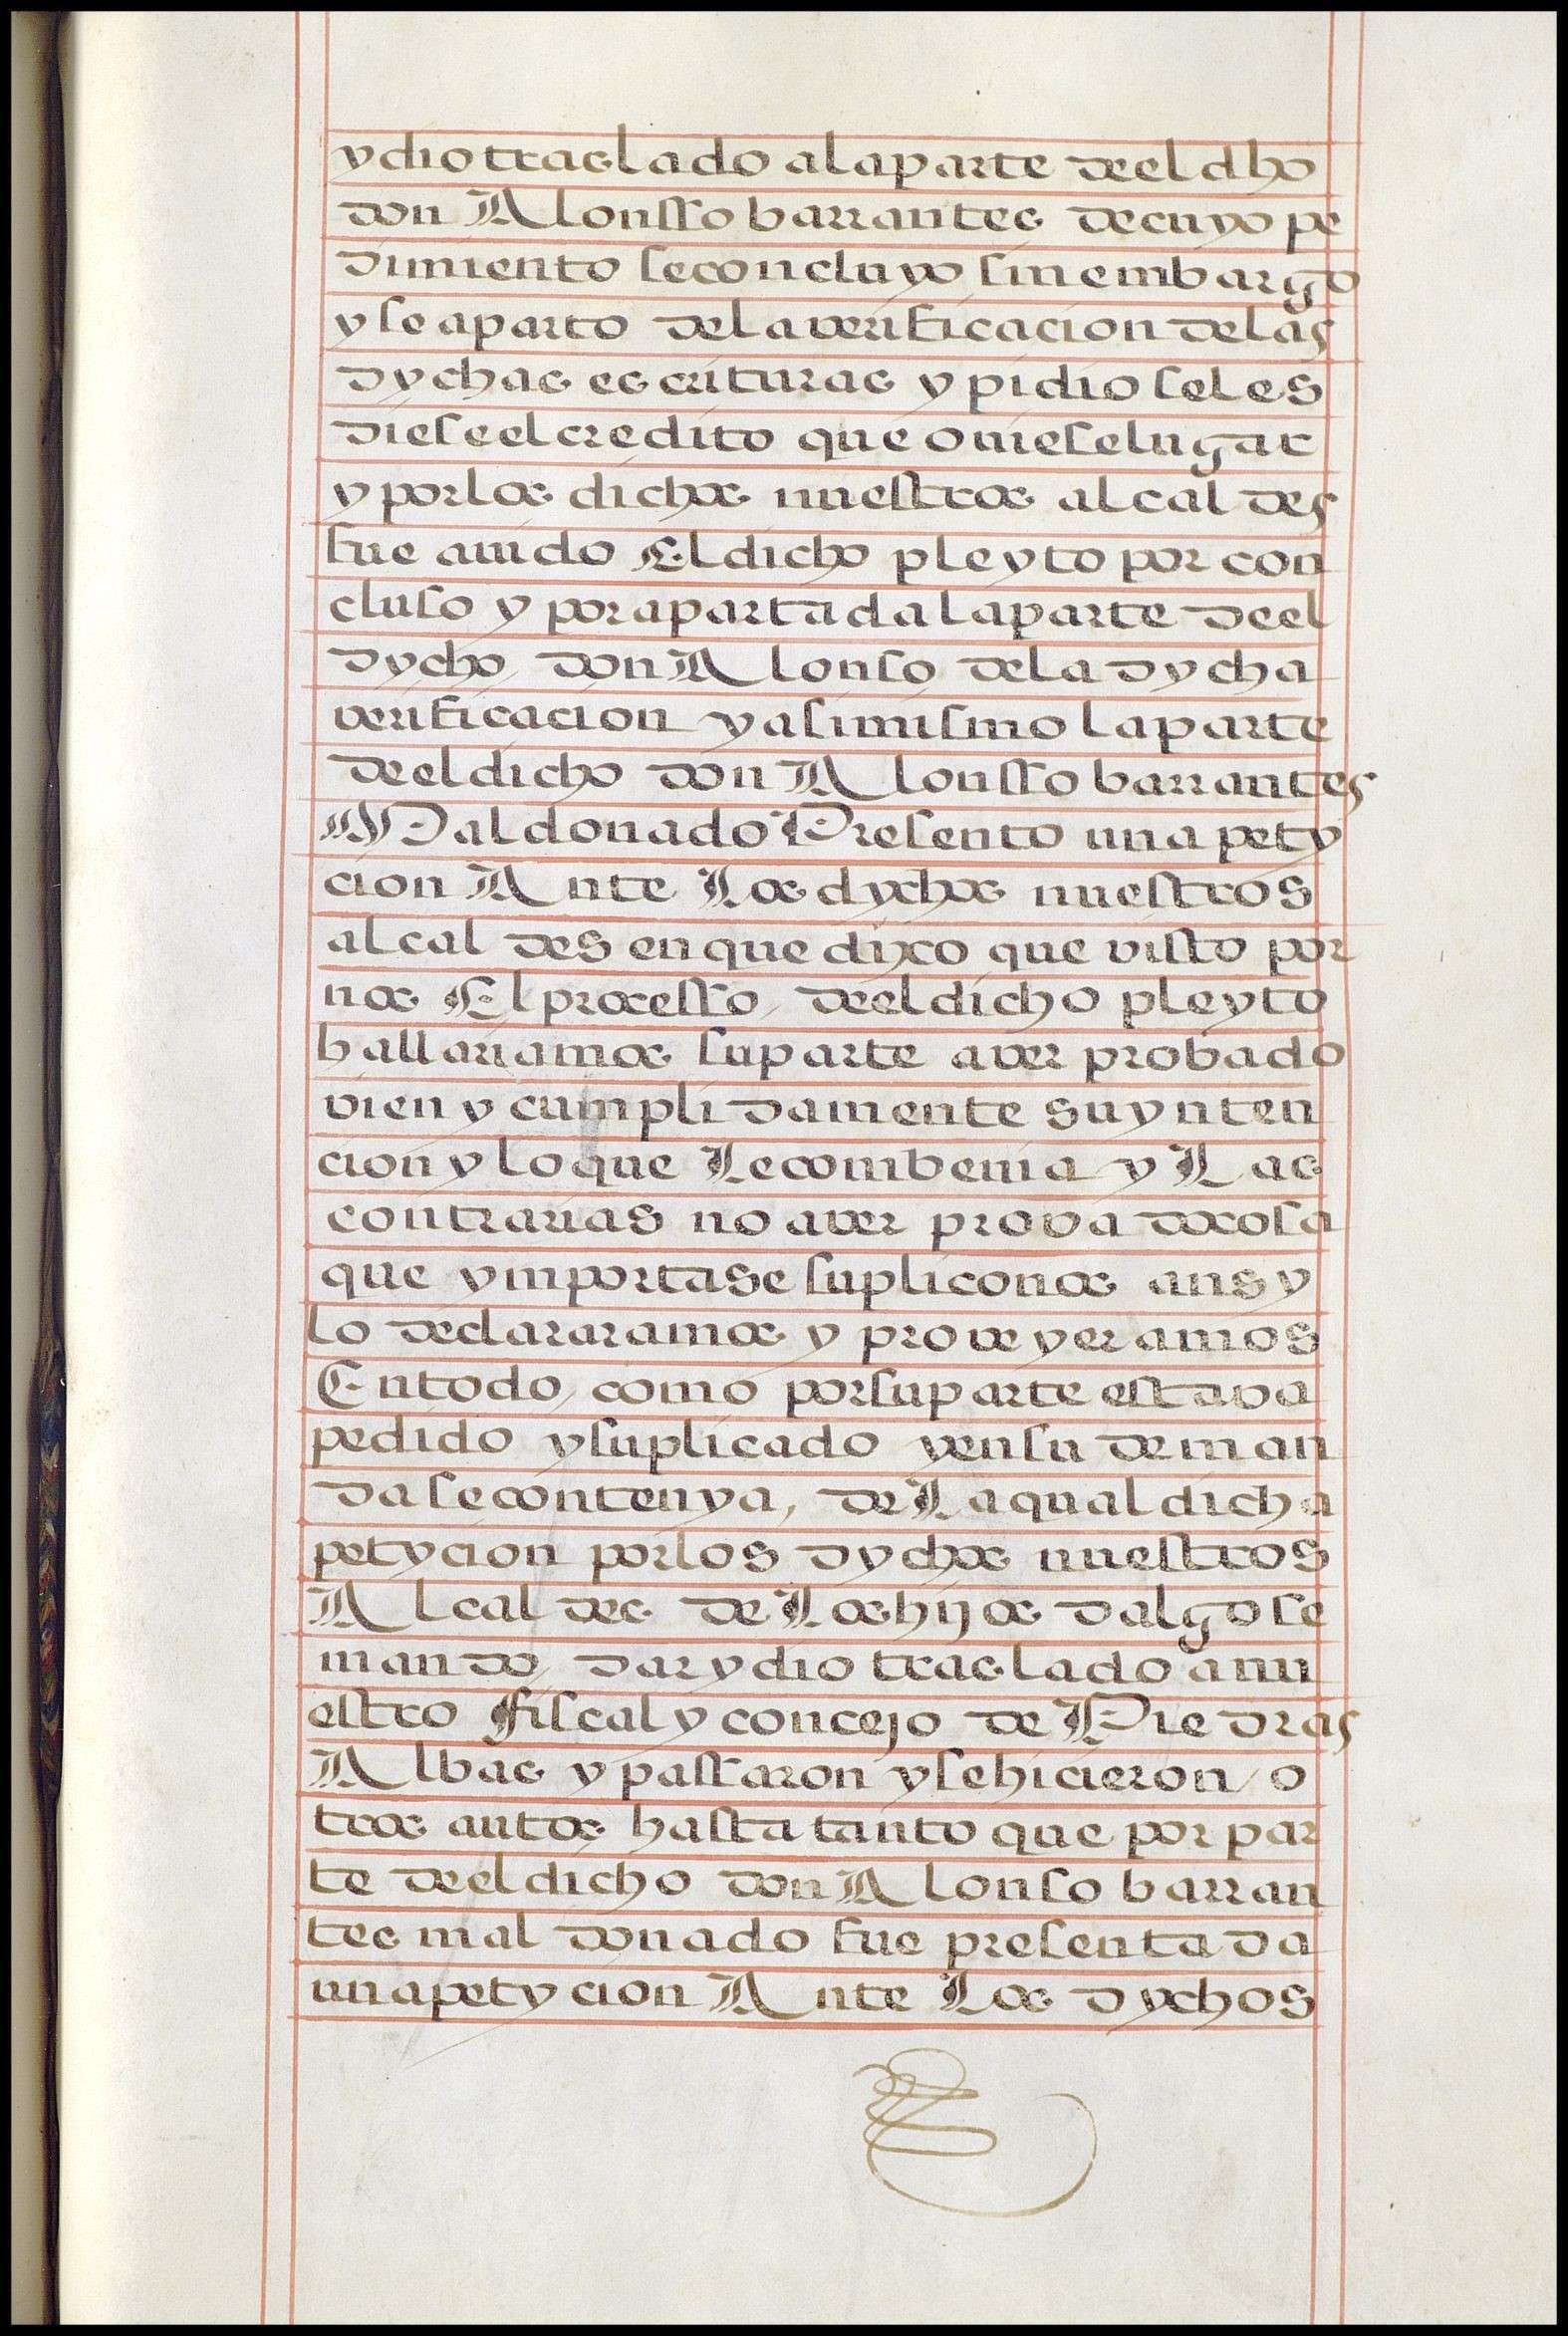 y dio traslado a la parte de el dho
don Alonsso barrantes de cuyo pe
dimiento se concluyo sin embargo
y se aparto de la verificacion de las
dychas escrituras y pidio se les
diese el credito que oviese lugar
y por los dichos nuestros alcaldes
fue auido El dicho pleyto por con
cluso y por apartada la parte de el
dycho don Alonso de la dycha
verificacion y asimismo la parte
de el dicho don Alonsso barrantes
Maldonado Presento una pety
cion Ante Los dychos nuestros
alcaldes en que dixo que visto por
nos El processo de el dicho pleyto
hallariamos su parte aver probado
vien y cumplidamente su ynten
cion y lo que Le combenia y Las
contrarias no aver provado cosa
que ymportase suplico nos ansy
lo declararamos y proveyeramos
En todo como por su parte estava
pedido y suplicado y en su deman
da se contenya, de La qual dicha
petycion por los dychos nuestros
Alcaldes de Los hijos dalgo se
mando dar y dio traslado a nu
estro fiscal y concejo de Piedras
Albas y passaron y se hicieron o
tros autos hasta tanto que por par
te de el dicho don Alonso barran
tes maldonado fue presentada
una petycion Ante Los dychos